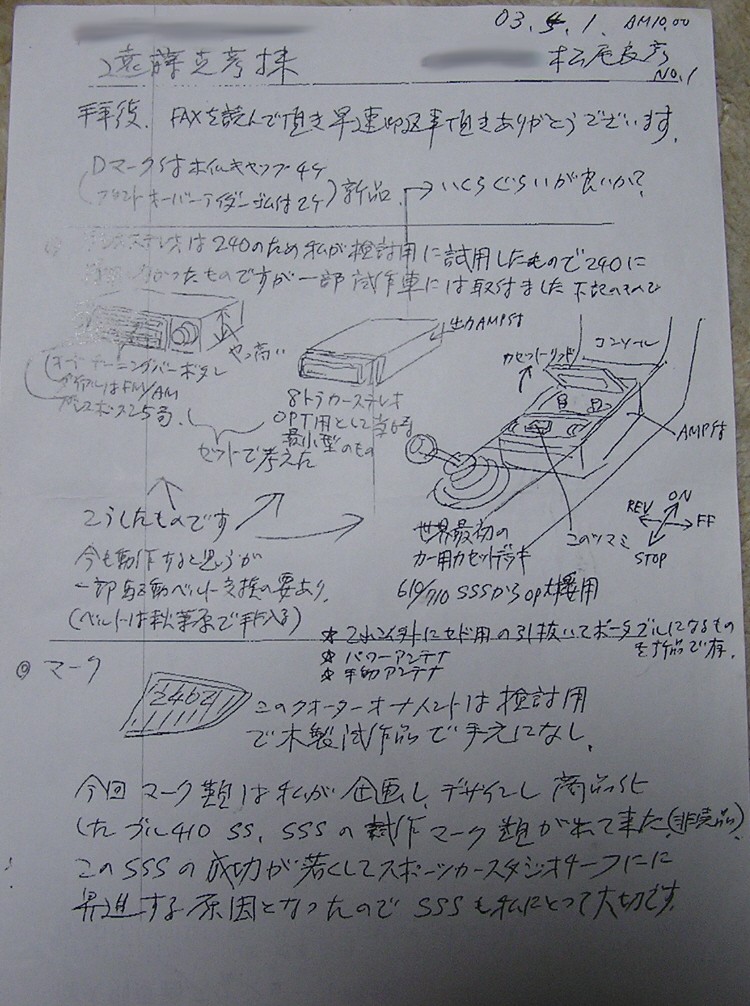 03. 4. 1. AM10.00
遠藤克彦様
松尾良彦
No.1
拝復、FAXを読んで頂き早速御返事頂きありがとうございます。
Dマーク付ホイルキャップ4ケ
(フロントオーバーライダーゴム付2ケ) 新品 → いくらぐらいが良いか?
ステレオは240のため私が検討用に試用したもので240に
なかったものですが一部試作車には取付ました 下記のもので
やゝ高い
(オートチューニングバーボタン
FM/AM
出力AMP付
8トラカーステレオ
OPT用として当時
最小型のもの
セットで考えた
カセットリッド
コンソール
AMP付
このツマミ
ON
REV
FF
STOP
こうしたものです
今も動作すると思うが
一部駆動ベルト交換の要あり。
(ベルトは秋葉原で手に入る)
世界最初の
カー用カセットデッキ
610/710 SSSから OP採用
☆ これ以外にセド用の引抜いてポータブルになるもの
を新品で有。
☆ パワーアンテナ
☆ 手動アンテナ
◎ マーク
240Z
このクオーターオーナメントは検討用
で木製試作品で手元になし。
今回マーク類は私が企画し、デザインし商品化
したブル410 SS、SSSの試作マーク類が出て来た(非売品)
このSSSの成功が若くしてスポーツカースタジオチーフに
昇進する原因となったのでSSSも私にとって大切です。